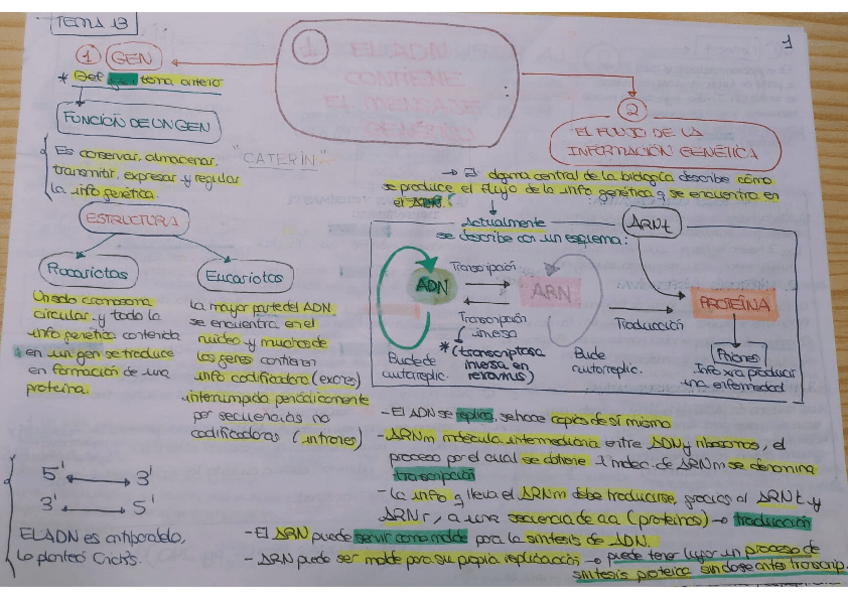 TEMA 13
1
1 GEN
* Def gen: tema anterior
FUNCIÓN DE UN GEN
Es conservar, almacenar,
transmitir, expresar y regular
la info genética.
"CATERIN"
ESTRUCTURA
Procariotas
Un solo cromosoma
circular. y toda la
info genética contenida
en un gen se traduce
en formación de una
proteína.
Eucariotas
La mayor parte del ADN.
se encuentra en el
núcleo y muchos de
los genes contienen
info codificadora (exones)
interrumpida periódicamente
por secuencias no
codificadoras (intrones)
5' 3'
3' 5'
El ADN es antiparalelo,
lo planteó Crick's.
EL ADN
CONTIENE
EL MENSAJE
GENÉTICO
2
EL FLUJO DE LA
INFORMACIÓN GENÉTICA
→ El dogma central de la biología describe cómo
se produce el flujo de la info genética q se encuentra en
el ADN.
Actualmente
se describe con un esquema:
ARNt
ADN
Transcripción
ARN
Transcripción
inversa
*(transcriptasa
inversa en
retrovirus)
Bucle de
autorreplic.
Bucle
autorreplic.
Traducción
PROTEÍNA
Priones
Info xra producir
una enfermedad
- El ADN se replica, se hace copias de sí mismo
- ARNm molécula intermediaria entre ADN y ribosomas, el
proceso por el cual se obtiene 1 molec. de ARNm se denomina
transcripción
- La info q lleva el ARNm debe traducirse, gracias al ARNt y
ARNr, a una secuencia de aa (proteínas) → traducción
- El ARN puede servir como molde para la síntesis de ADN.
- ARN puede ser molde para su propia replicación → puede tener lugar un proceso de
síntesis proteica sin darse antes transcrip.